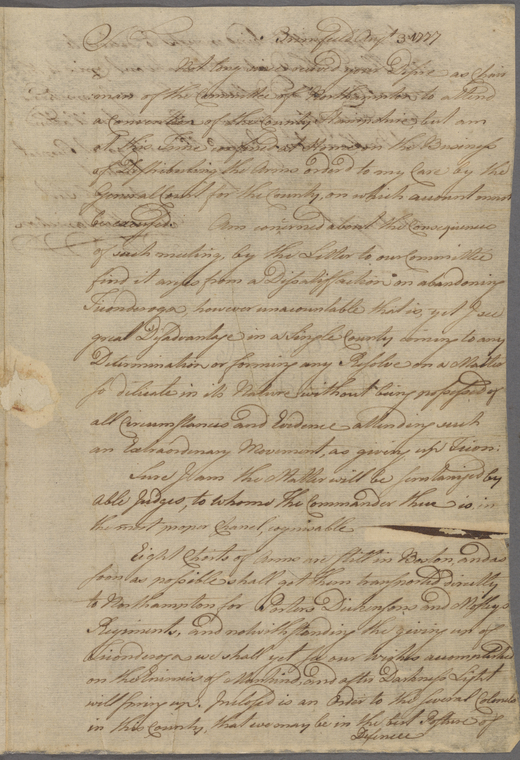 Sir Brimfield Augt 3d 1777
Not long since received your Desire as Chair
man of the Committee of Northampton to attend
a Convention of the County Hampshire but am
at this Time confined at Home in the Business
of Distributing the Arms orderd to my Care by the
General Court for the County, on which account must
be excused. Am concerned about the Consequence
of such meeting, by the Letter to our Committee
find it arises from a Dissatisfaction on abandoning
Ticonderoga, however unaccountable that is, yet I see
great Disadvantage in a Single County coming to any
Determination or forming any Resolve on a Matter
so delicate in its Nature without being possessed of
all Circumstances and Evidence attending such
an Extraordinary Movement, as giving up Ticon:
Sure I am the Matter will be scrutinized by
able Judges, to whome the Commander there is in
the most proper Chanel, cognisable
Eight Chests of Arms are still in Boston, and as
soon as possible shall get them transported directly
to Northampton for Porters Dickensons and Moseleys
Regiments, and notwithstanding the giving up of
Ticonderoga we shall yet see our Wishes accomplished
on the Enemies of Mankind, and after Darkness Light
will spring up. Inclosed is an Order to the several Colonels
in this County, that we may be in the best Posture of
Defence